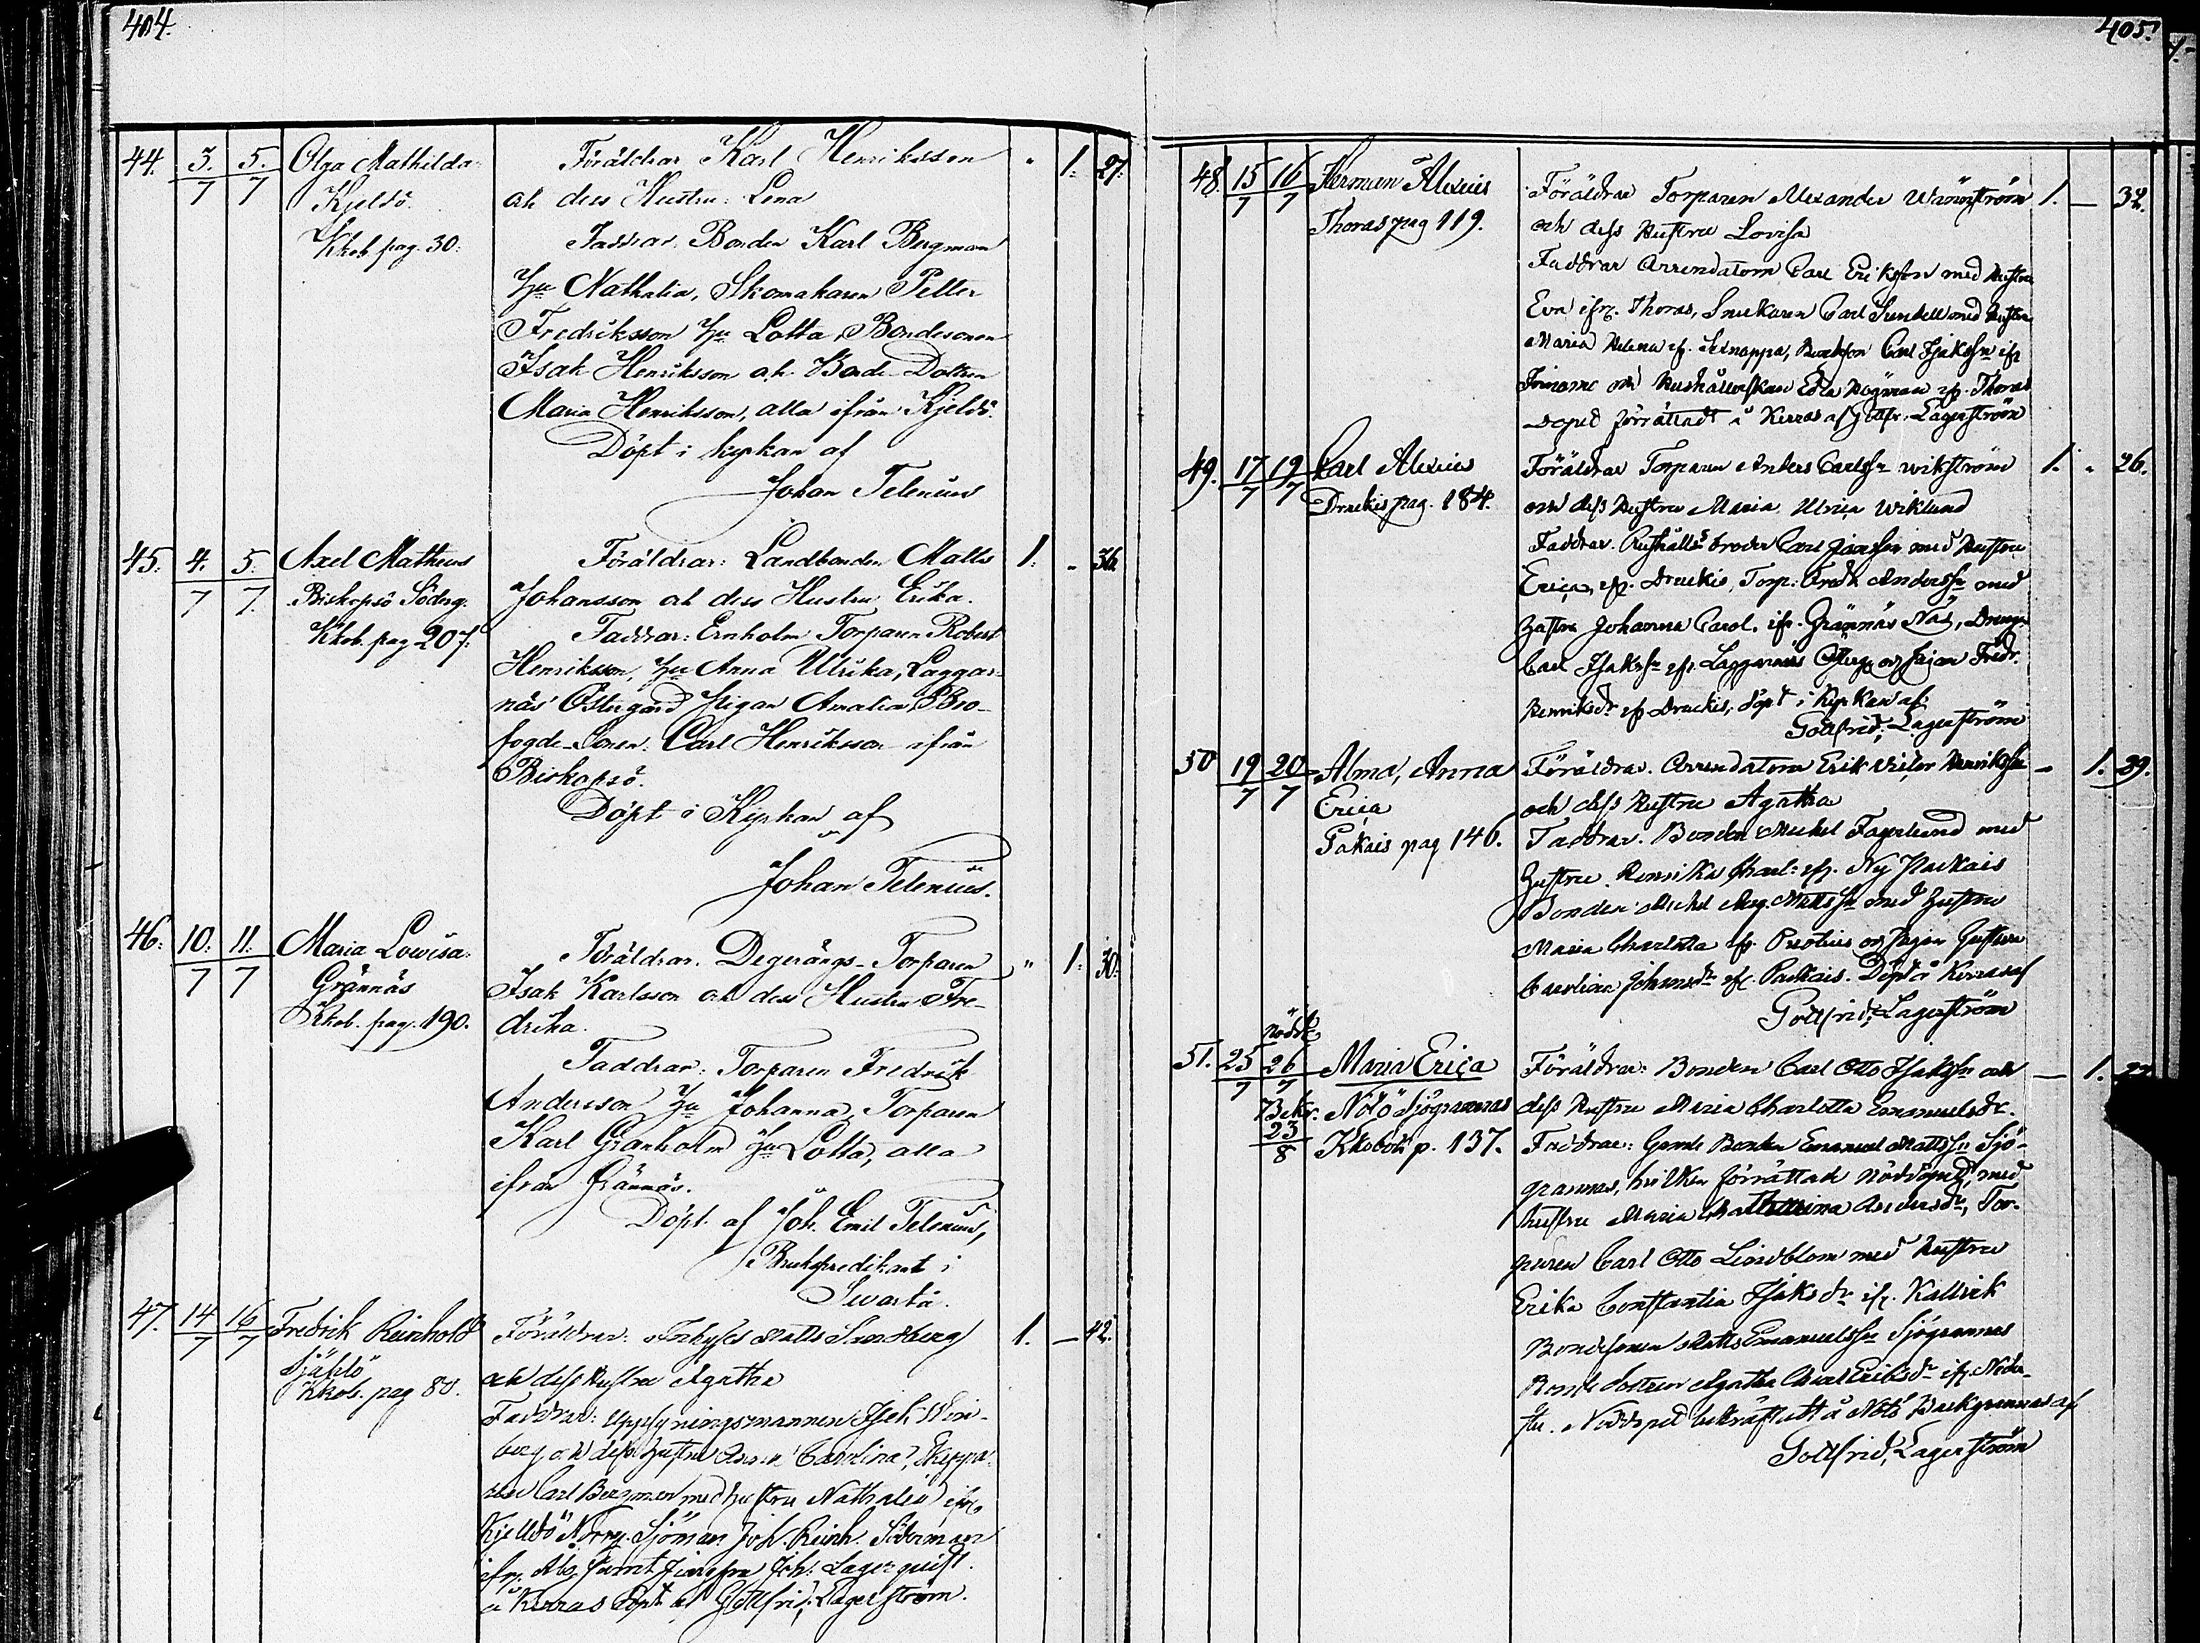 404.
44. 3/7 5/7 Olga Mathilda
Kjeldö.
Kkob. pag. 30.
Föräldrar Karl Henriksson " 1. 27.
och dess Hustru Lena
Faddrar. Bonden Karl Bergman
Hu Nathalia, Skomakaren Petter
Fredriksson Hu Lotta, Bondesonen
Isak Henriksson och Bonde-Dottren
Maria Henriksson, alla ifrån Kjeldö.
Döpt i kyrkan af
Johan Telenius
45. 4./7 5./7. Axel Matheus
Biskopsö Söderg.
Kkob. pag 207.
Föräldrar: Landbonden Matts 1. - 36
Johansson och dess Hustru Erika.
Faddrar: Ernholm Torparen Robert
Henriksson, Hu Anna Ulrika, Laggar-
näs Östergård Pigan Amalia Bro-
fogde-Sonen. Carl Henriksson ifrån
Biskopsö.
Döpt i Kyrkan af
Johan Telenius.
46. 10./7 11./7 Maria Lowisa.
Grännäs
Kkob. pag. 190.
Föräldrar. Degerängs-Torparen " 1. 30.
Isak Karlsson och dess Hustru Fre-
drika.
Faddrar: Torparen Fredrik
Andersson Hu Johanna, Torparen
Karl Granholm Hu Lotta, alla
ifrån Grännäs.
Döpt af Joh. Emil Telenius,
Brukspredikant i
Svartå.
47. 14/7 16/7 Fredrik Reinhold
Själö
Kkob. pag 80.
Föräldrar: Matts Sundberg 1. — 42.
och dess Hustru Agatha
Faddrar: Uppsyningsmannen Isak
berg och dess hustru Carolina,
Carl Bergman med hustru Nathalia ifr.
Kjelldö Norrg. Sjöman Joh. Reinh. Söderman
ifr. samt Joh. Lagerquist.
å Kirras döpt af Gottfrid Lagerström.
405.
48. 15/7 16/7 Herman Alexius
Thoras pag 119.
Föräldrar Torparen Alexander 1. — 32.
och dess Hustru Lovisa
Faddrar Arrendatorn Carl Eriksson med Hustru
Eva ifr. Thoras, Snickaren Carl Sundell med Hustru
Maria Helena ifr. Carl Isakss:n ifr
och Hushållerskan Edla ifr. Thoras
Dopet förrättadt å Kirras af Gottfr. Lagerström
49. 17/7 19/7 Carl Alexius
Druckis pag. 184.
Föräldrar Torparen Anders Carlss:n Wikström 1. " 26.
och dess Hustru Maria Ulrica Wiklund
Faddrar. Rusthålls broder Carl med Hustru
Erica, ifr. Druckis, Torp. Fredr. Anderss:n med
hustru Johanna Carol. ifr. Grännäs Näs, Dreng.
Carl Isakss:n ifr. Laggarnäs Österg. och pigan Fredr.
Henriksdr ifr Druckis, döpt i Kyrkan af
Gottfrid Lagerström
50 19/7 20/7 Alma, Anna
Erica
Pakais pag 146.
Föräldrar. Arrendatorn Erik Victor Henrikss:n — 1. 29.
och dess Hustru Agatha
Faddrar. Bonden Michel Fagerlund med
Hustru Henrika Charl. ifr. Ny Packais
Bonden Michel Aug. Matts:n med hustru
Maria Charlotta ifr. Prostvik och pigan Gustava
Carolina Johansdr ifr. Packais. Döpt å Kirras af
Gottfrid Lagerström
Nöddt.
51. 25/7 26/7 Maria Erica
Bekr. 23/8 Nötö Sjögrannas
Kkobok p. 137.
Föräldrar: Bonden Carl Otto Isakss:n och — 1. 27.
dess Hustru Maria Charlotta Emanuelsdr.
Faddrar: Gamle Bonden Emanuel Mattss:n Sjö-
grannas, hvilken förrättade nöddopet, med
hustru Maria Cathrina Andersdr, Tor-
paren Carl Otto Lindblom med Hustru
Erika Constantia Isaksdr ifr. Kallvik
Bondesonen Matts Emanuelss:n Sjögrannas
Bondedottren Agatha Eriksdr ifr.
Nöddopet bekräftadt å Nötö Backgrannas af
Gottfrid Lagerström